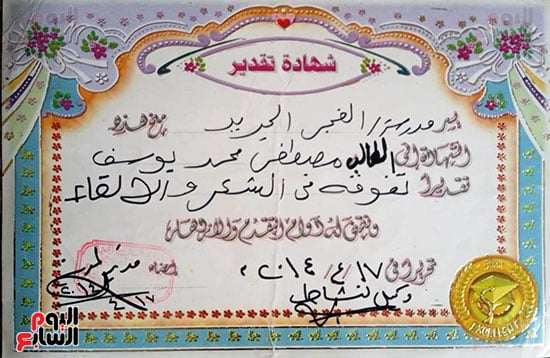 شهادة تقدير
يسر مدرسة/ الفجر الجديد منح هذه
الشهادة إلى الطالب مصطفى محمد يوسف
تقديراً لتفوقه فى الشعر والالقاء
ونتمنى له دوام التقدم والازدهار
تحريراً فى ١٧ / ٤ / ٢٠١٤ إمضاء
وكيل نشاط
مدير المدرسة
٢٠١٤/٤/١٧
اليوم السابع